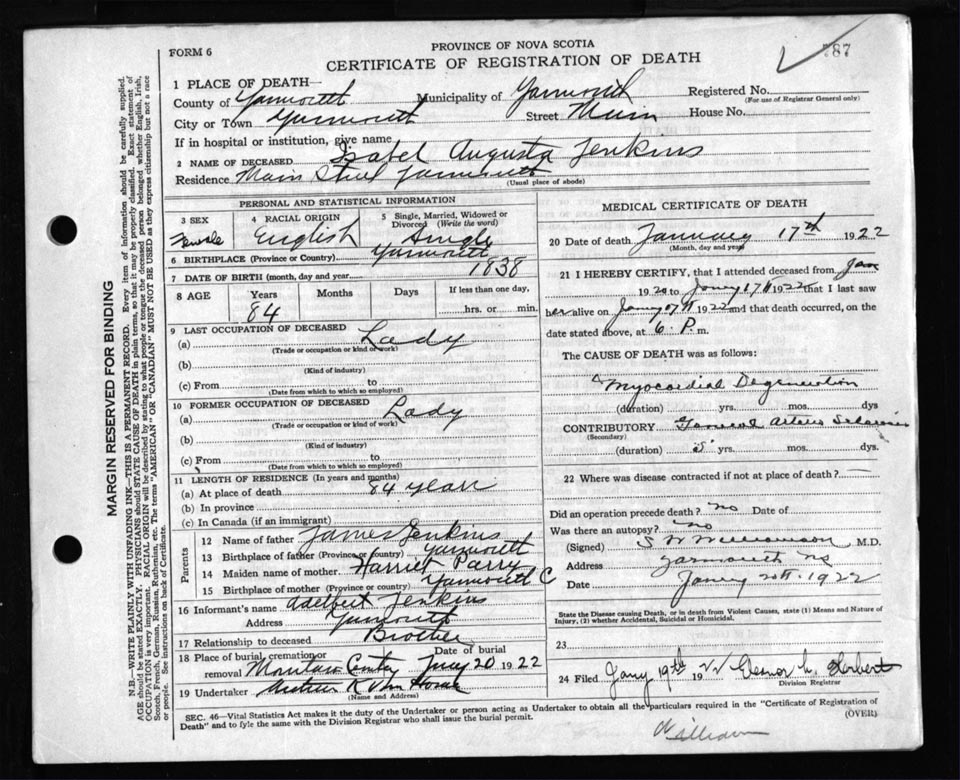 FORM 6
PROVINCE OF NOVA SCOTIA
CERTIFICATE OF REGISTRATION OF DEATH
787
1 PLACE OF DEATH—
County of Yarmouth Municipality of Yarmouth Registered No.
(For use of Registrar General only)
City or Town Yarmouth Street Main House No.
If in hospital or institution, give name
2 NAME OF DECEASED Isabel Augusta Jenkins
Residence Main Street Yarmouth
(Usual place of abode)
PERSONAL AND STATISTICAL INFORMATION
3 SEX
Female
4 RACIAL ORIGIN
English
5 Single, Married, Widowed or Divorced (Write the word)
Single
6 BIRTHPLACE (Province or Country) Yarmouth
7 DATE OF BIRTH (month, day and year) 1838
8 AGE Years Months Days If less than one day,
84 hrs. or min.
9 LAST OCCUPATION OF DECEASED
(a) Lady
(Trade or occupation or kind of work)
(b)
(Kind of industry)
(c) From to
(Date from which to which so employed)
10 FORMER OCCUPATION OF DECEASED
(a) Lady
(Trade or occupation or kind of work)
(b)
(Kind of industry)
(c) From to
(Date from which to which so employed)
11 LENGTH OF RESIDENCE (In years and months)
(a) At place of death 84 years
(b) In province
(c) In Canada (if an immigrant)
Parents
12 Name of father James Jenkins
13 Birthplace of father (Province or country) Yarmouth
14 Maiden name of mother Harriet Parry
15 Birthplace of mother (Province or country) Yarmouth C
16 Informant's name Adelbert Jenkins
Address Yarmouth
17 Relationship to deceased Brother
18 Place of burial, cremation or removal Date of burial
Jany 20 1922
19 Undertaker Van Horne
(Name and Address)
MEDICAL CERTIFICATE OF DEATH
20 Date of death January 17th 1922
(Month, day and year)
21 I HEREBY CERTIFY, that I attended deceased from Jan
1920 to Jany 17th 1922 that I last saw
her alive on Jany 17th 1922 and that death occurred, on
date stated above, at 6 P. m.
The CAUSE OF DEATH was as follows:
Myocardial Degeneration
(duration) yrs. mos. dys
CONTRIBUTORY General Arterio Sclerosis
(Secondary)
(duration) 5 yrs. mos. dys.
22 Where was disease contracted if not at place of death?
Did an operation precede death? no Date of
Was there an autopsy? no
(Signed) S W Williamson M.D.
Address Yarmouth NS
Date Jany 20th 1922
State the Disease causing Death, or in death from Violent Causes, state (1) Means and Nature of Injury, (2) whether Accidental, Suicidal or Homicidal.
23
24 Filed Jany 19th 1922 L. Horbert
Division Registrar
SEC. 46—Vital Statistics Act makes it the duty of the Undertaker or person acting as Undertaker to obtain all the particulars required in the "Certificate of Registration of
Death" and to fyle the same with the Division Registrar who shall issue the burial permit.
(OVER)
MARGIN RESERVED FOR BINDING
N.B.—WRITE PLAINLY WITH UNFADING INK—THIS IS A PERMANENT RECORD. Every item of information should be carefully supplied.
AGE should be stated EXACTLY. PHYSICIANS should STATE CAUSE OF DEATH in plain terms, so that it may be properly classified. Exact statement of
OCCUPATION is very important. RACIAL ORIGIN will be described by stating to what people or tongue the deceased person belonged whether English, Irish,
Scotch, French, German, Russian, Ruthenian, etc. The terms "AMERICAN" or "CANADIAN" MUST NOT BE USED as they express citizenship but not a race
or people. See instructions on back of Certificate.